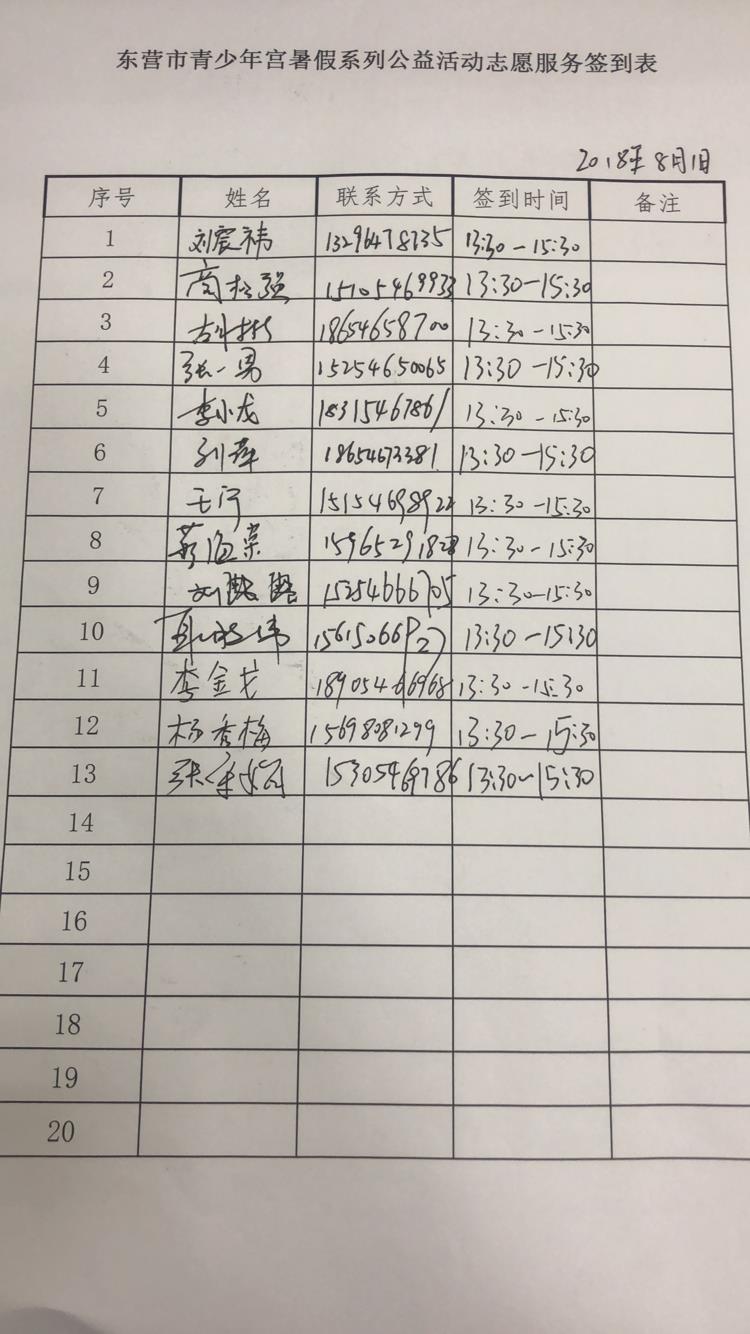 东营市青少年宫暑假系列公益活动志愿服务签到表
2018年8月1日
序号 姓名 联系方式 签到时间 备注
1 刘宸祎 13296478735 13:30-15:30
2 商 强 15105469933 13:30-15:30
3 18654658700 13:30-15:30
4 张一男 15254650065 13:30-15:30
5 李小龙 18315467861 13:30-15:30
6 孙萍 18654673381 13:30-15:30
7 王河 15154698922 13:30-15:30
8 海棠 15965291828 13:30-15:30
9 15254666705 13:30-15:30
10 13:30-15:30
11 李金戈 18905466968 13:30-15:30
12 杨秀梅 15698081299 13:30-15:30
13 张 15305469786 13:30-15:30
14
15
16
17
18
19
20